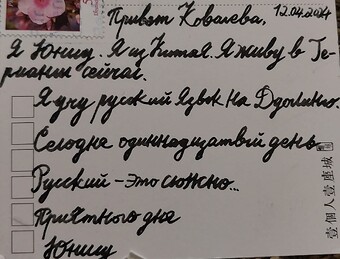 Привэт Ковалева, 12.04.2024
Я Юнишу. Я из Китая. Я живу в Гер-
мании сейчас.
Я учу русский язвк на Дуолинго.
Сегодна одиннадизатвій день.
Русский - это сюжно...
Приятного дна
Юнишу
壹個人壹座城